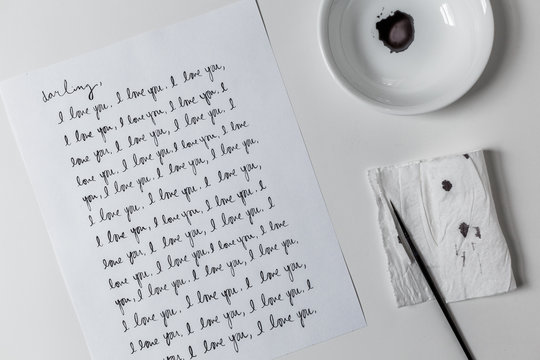 darling,
I love you. I love you. I love you,
I love you, I love you, I love you. I
love you. I love you, I love you. I
love you. I love you. I love you, I love
you, I love you. I love you, I love you.
I love you. I love you. I love you,
I love you, I love you, I love you. I
love you. I love you, I love you. I
love you. I love you. I love you, I love
you, I love you. I love you, I love you.
I love you. I love you. I love you,
I love you, I love you, I love you. I
love you. I love you, I love you.